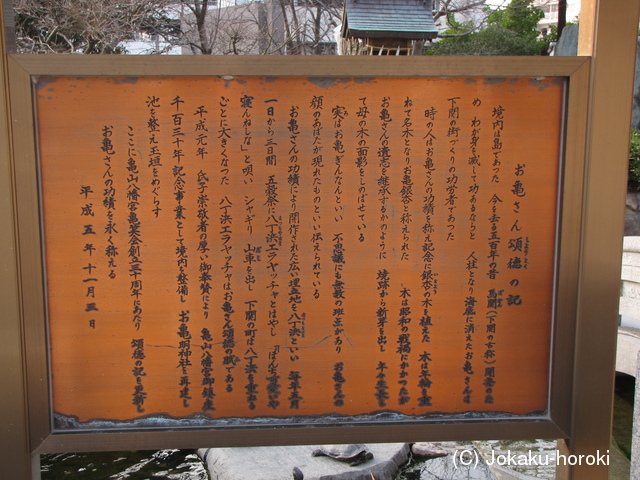 お亀さん 頌徳の記
境内は島であった 今を去る五百年の昔 馬関(下関の古称)開発の為
め わが身を滅して功あるならと 人柱となり海底に消えたお亀さんは
下関の街づくりの功労者であった
時の人はお亀さんの功績を称え記念に銀杏の木を植えた 木は年輪を重
ねて名木となりお亀銀杏と称えられた 木は昭和の戦禍にかかったが
お亀さんの遺志を継承するかのように 焼跡から新芽を出し 年々生長し
て母の木の面影をしのばせている
実はお亀ぎんなんといい 不思議にも無数の斑点があり お亀さんの
顔のあばたが現れたものといい伝えられている
お亀さんの功績により開作された広い埋立地を八丁浜といい 毎年五月
一日から三日間 五穀祭に八丁浜エラヤッチャとはやし
ごとに大きくなった 八丁浜エラヤッチャはお亀さん頌徳の賦である
平成元年 氏子崇敬者の厚い御奉賛により 亀山八幡宮御鎮座
千百三十年記念事業として境内を整備し お亀明神社を再建し
池を整え玉垣をめぐらす
ここに亀山八幡宮亀笑会創立三十周年にあたり 頌徳の記を更新し
お亀さんの功績を永く称える
平成五年十一月三日
(C)Jokaku-horoki